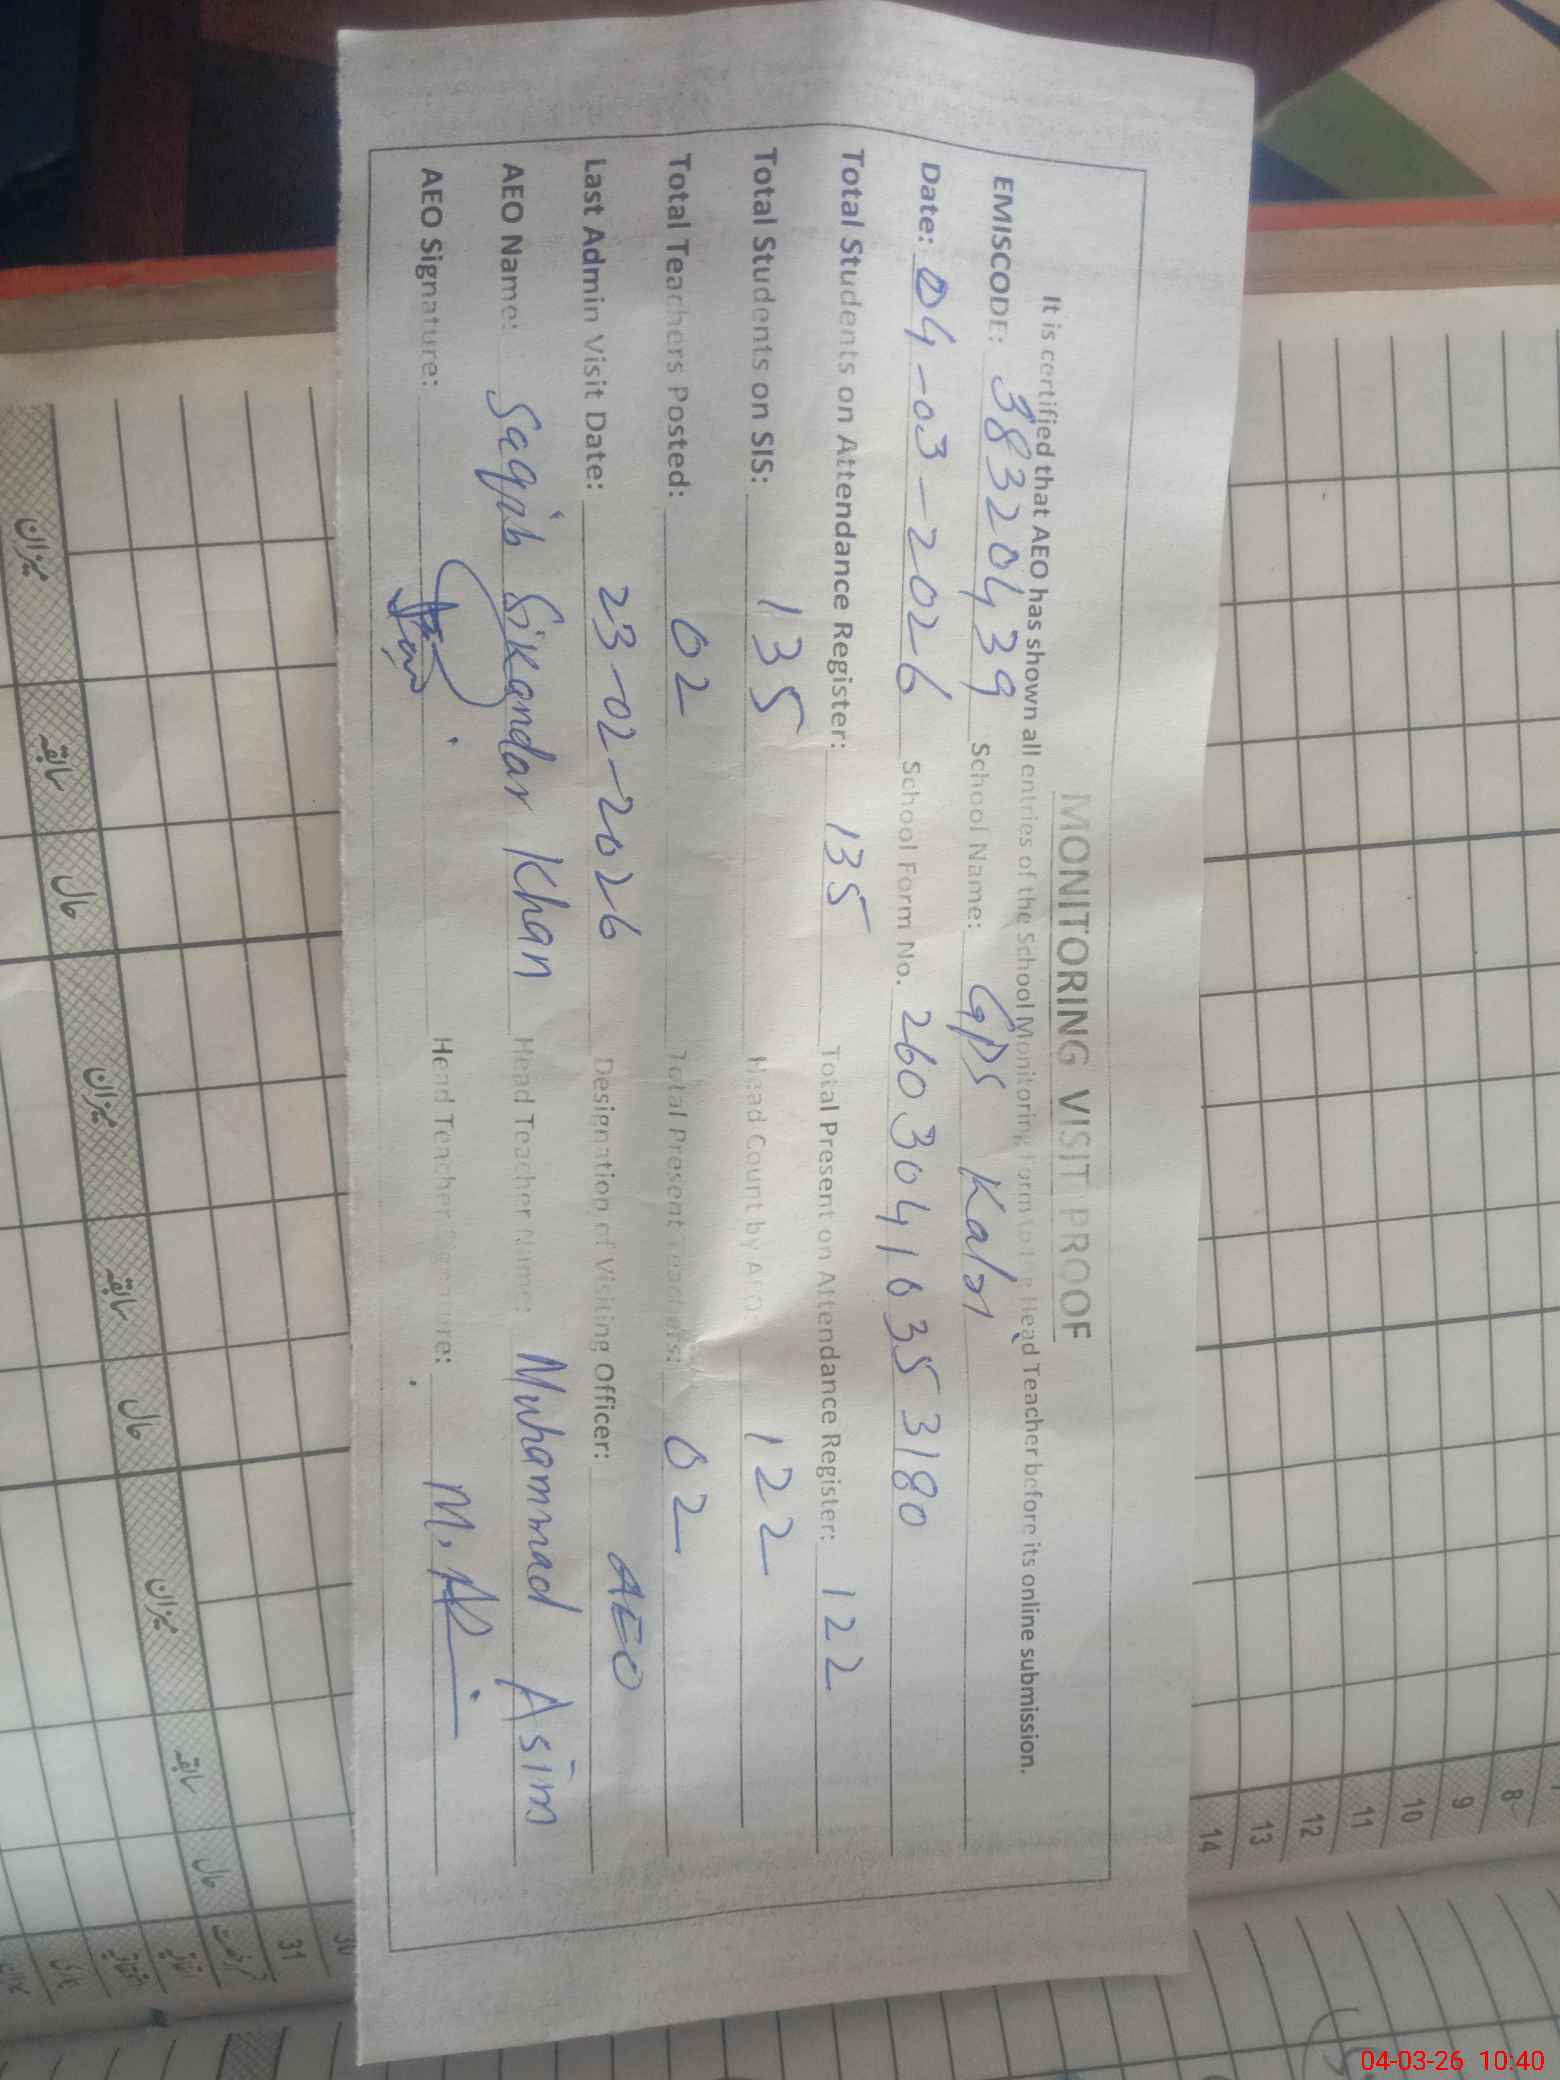 MONITORING VISIT PROOF
It is certified that AEO has shown all entries of the School Monitoring Form to the Head Teacher before its online submission.
EMISCODE: 38320439 School Name: GPS Kalri
Date: 04-03-2026 School Form No. 26030416353180
Total Students on Attendance Register: 135 Total Present on Attendance Register: 122
Total Students on SIS: 135 Head Count by AEO: 122
Total Teachers Posted: 02 Total Present Teachers: 02
Last Admin Visit Date: 23-02-2026 Designation of Visiting Officer: AEO
AEO Name: Saqib Sikandar Khan Head Teacher Name: Muhammad Asim
AEO Signature: Head Teacher Signature: M.
8
9
10
11
12
13
14
30
31
میزان
سابقہ
حال
میزان
سابقہ
حال
میزان
سابقہ
حال
04-03-26 10:40